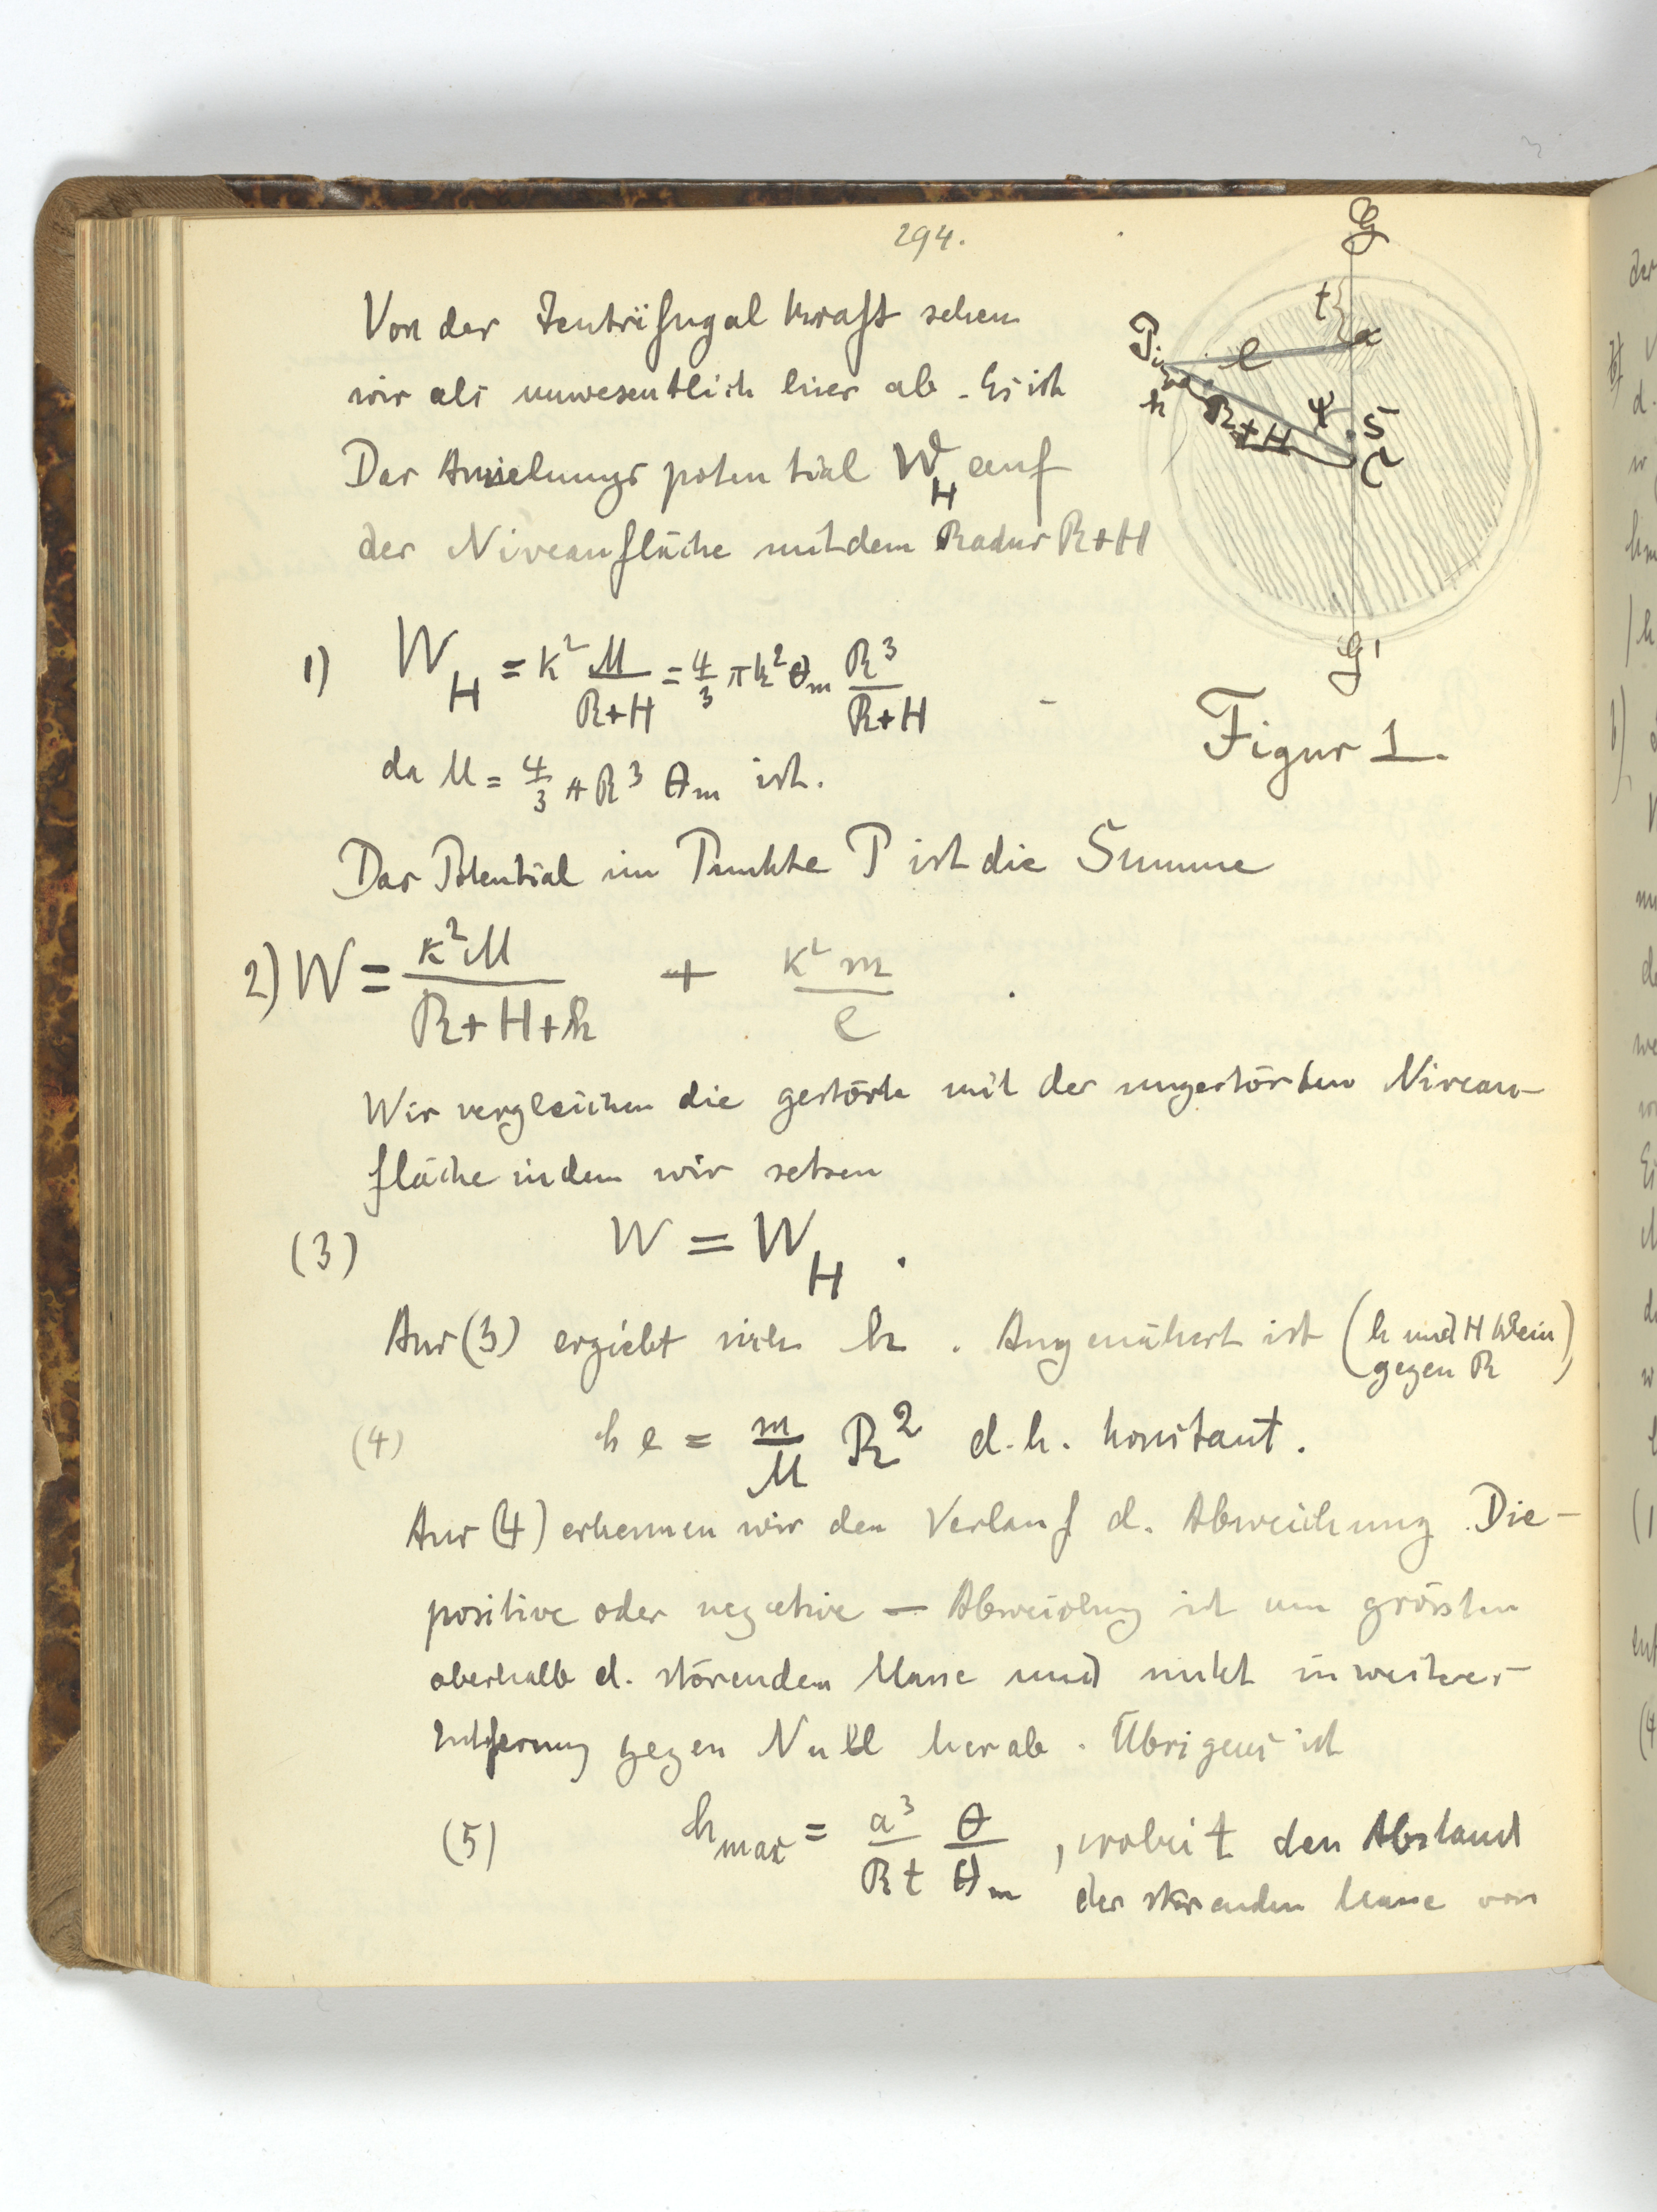 294.
Von der Zentrifugalkraft sehen
wir als unwesentlich hier ab. Es ist
Das Anziehungspotential W_H auf
der Niveaufläche mit dem Radius R+H
1) W_H = k² M/(R+H) = 4/3 π k² θ_m R³/(R+H)
da M = 4/3 π R³ θ_m ist.
Das Potential im Punkte P ist die Summe
2) W = k²M/(R+H+h) + k²m/e
Wir vergleichen die gestörte mit der ungestörten Niveau-
fläche indem wir setzen
(3) W = W_H.
Aus (3) ergiebt sich h. Angenähert ist (h und H klein
gegen R)
(4) h e = m/M R² d.h. konstant.
Aus (4) erkennen wir den Verlauf d. Abweichung. Die -
positive oder negative — Abweichung ist am grössten
oberhalb d. störenden Masse und sinkt in weiter
Entfernung gegen Null herab. Übrigens ist
(5) h_max = a³/(R t) θ/θ_m, wobei t den Abstand
der störenden Masse von
G
t
P
e
h
R+H
ψ
S
C
G'
Figur 1.